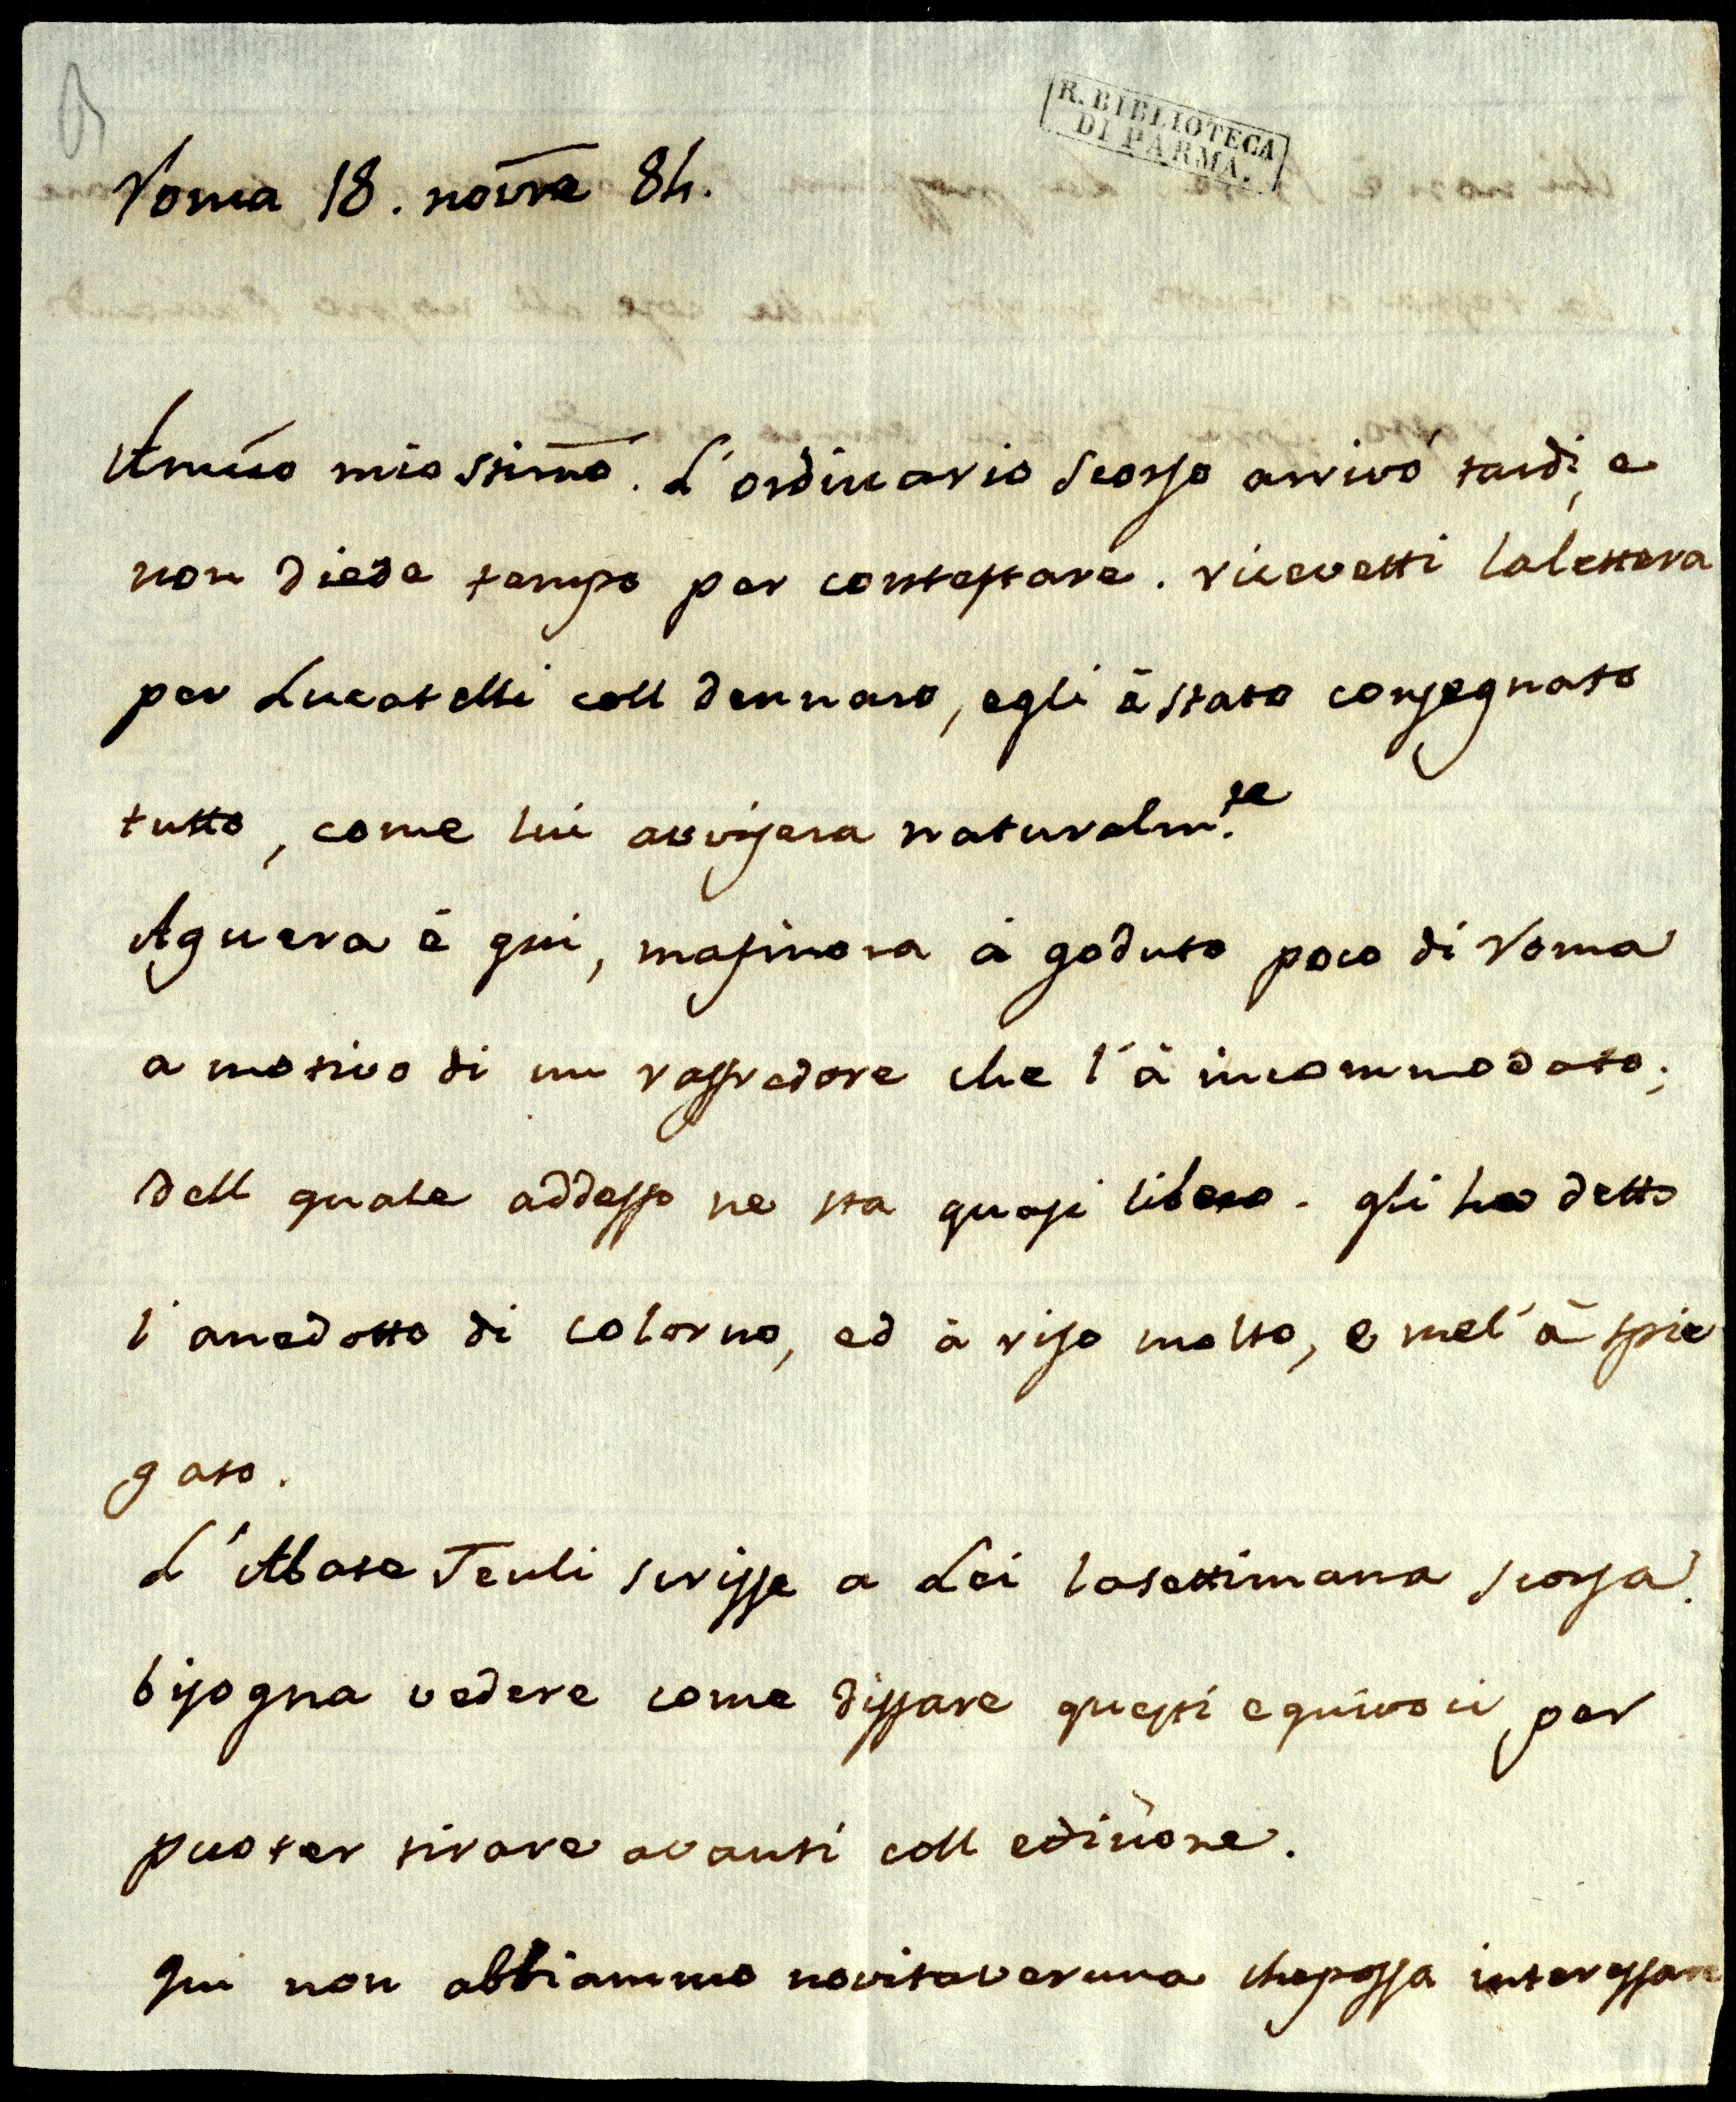 R. BIBLIOTECA
DI PARMA.
Roma 18. novre 84.
Amico mio stimo. L'ordinario scorso arrivò tardi, e
non diede tempo per contestare. ricevetti lalettera
per Lucatelli coll dennaro, egli è stato consegnato
tutto, come lui avvisera naturalm.te
Aguera è qui, masinora à goduto poco di Roma
a motivo di un raffredore che l'à incommodato;
dell quale addesso ne sta quasi libero. gli ho detto
l'anedotto di Colorno, ed à riso molto, e mel'à spie
gato.
L'Abate Teuli scrisse a Lei lasettimana scorsa.
bisogna vedere come disfare questi equivoci per
puoter tirare avanti coll edizione.
Qui non abbiammo novitaveruna chepossa interessare